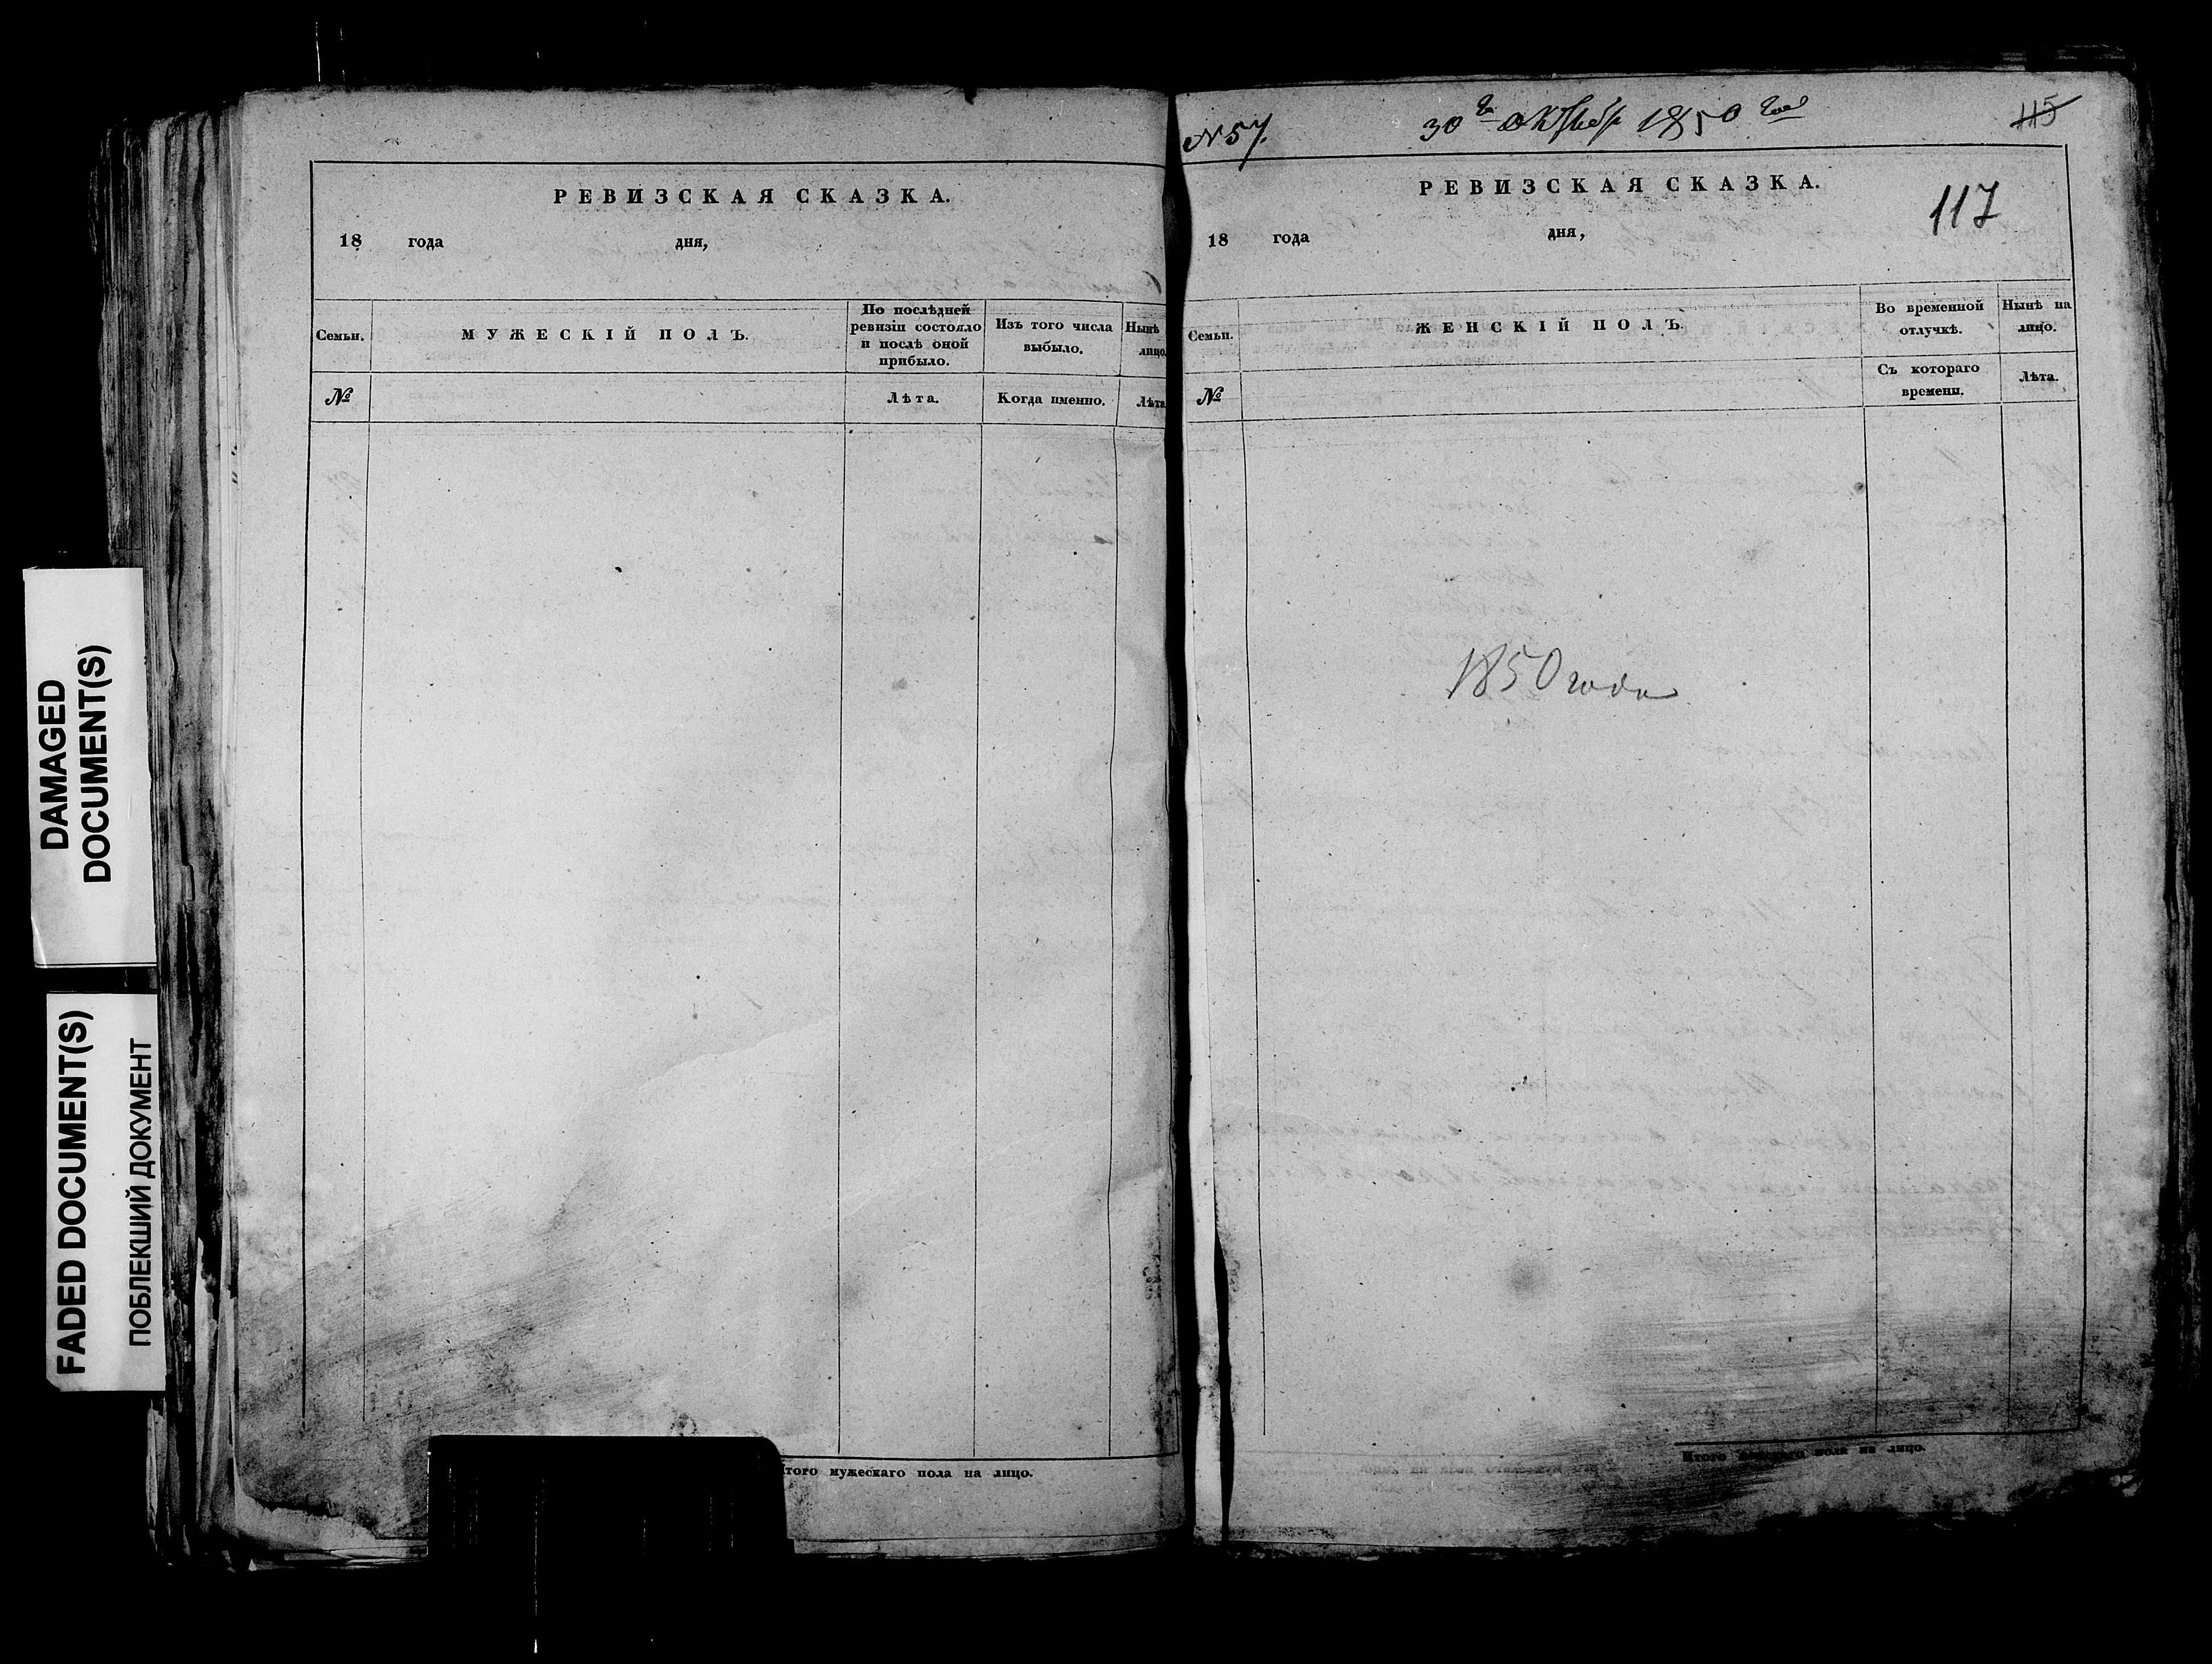 DAMAGED
DOCUMENT(S)
FADED DOCUMENT(S)
ПОБЛЕКШИЙ ДОКУМЕНТ
РЕВИЗСКАЯ СКАЗКА.
18 года дня,
Семьи. МУЖЕСКІЙ ПОЛЪ. По послѣдней ревизіи состояло и послѣ оной прибыло. Изъ того числа выбыло. Нынѣ лицо.
№ Лѣта. Когда именно. Лѣта
Итого мужескаго пола на лицо.
N 57. 30го октябр 1850 года 115
РЕВИЗСКАЯ СКАЗКА.
117
18 года дня,
Семьи. ЖЕНСКІЙ ПОЛЪ. Во временной отлучкѣ. Нынѣ на лицо.
№ Съ котораго времени. Лѣта.
1850 года
Итого женскаго пола на лицо.